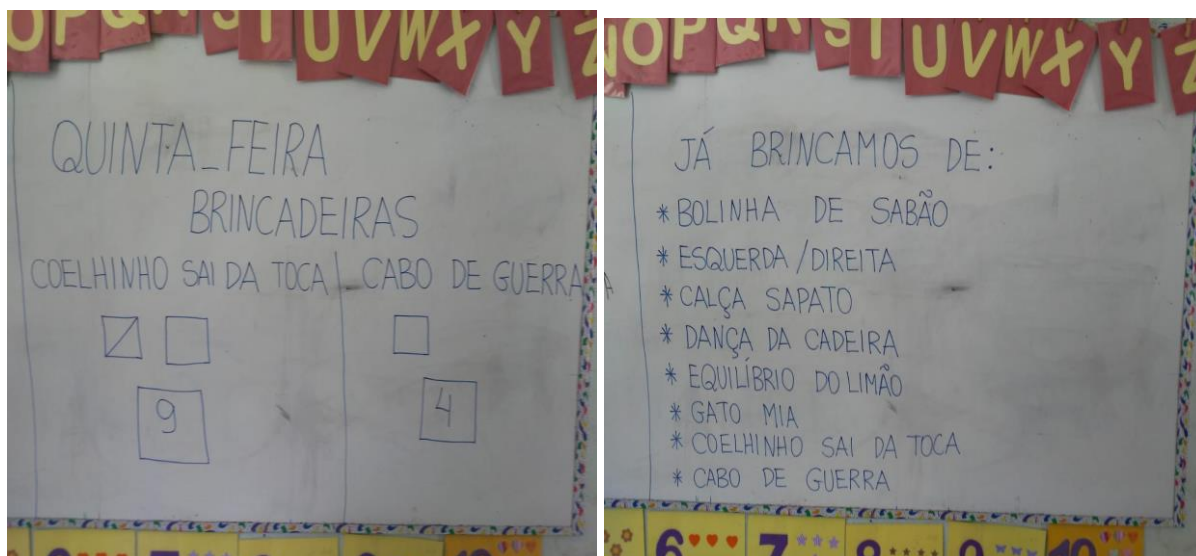 O P Q R S T U V W X Y Z
QUINTA_FEIRA
BRINCADEIRAS
COELHINHO SAI DA TOCA | CABO DE GUERRA
9 4
N O P Q R S T U V W X Y Z
JÁ BRINCAMOS DE:
* BOLINHA DE SABÃO
* ESQUERDA / DIREITA
* CALÇA SAPATO
* DANÇA DA CADEIRA
* EQUILÍBRIO DO LIMÃO
* GATO MIA
* COELHINHO SAI DA TOCA
* CABO DE GUERRA
6 7 8 9 10